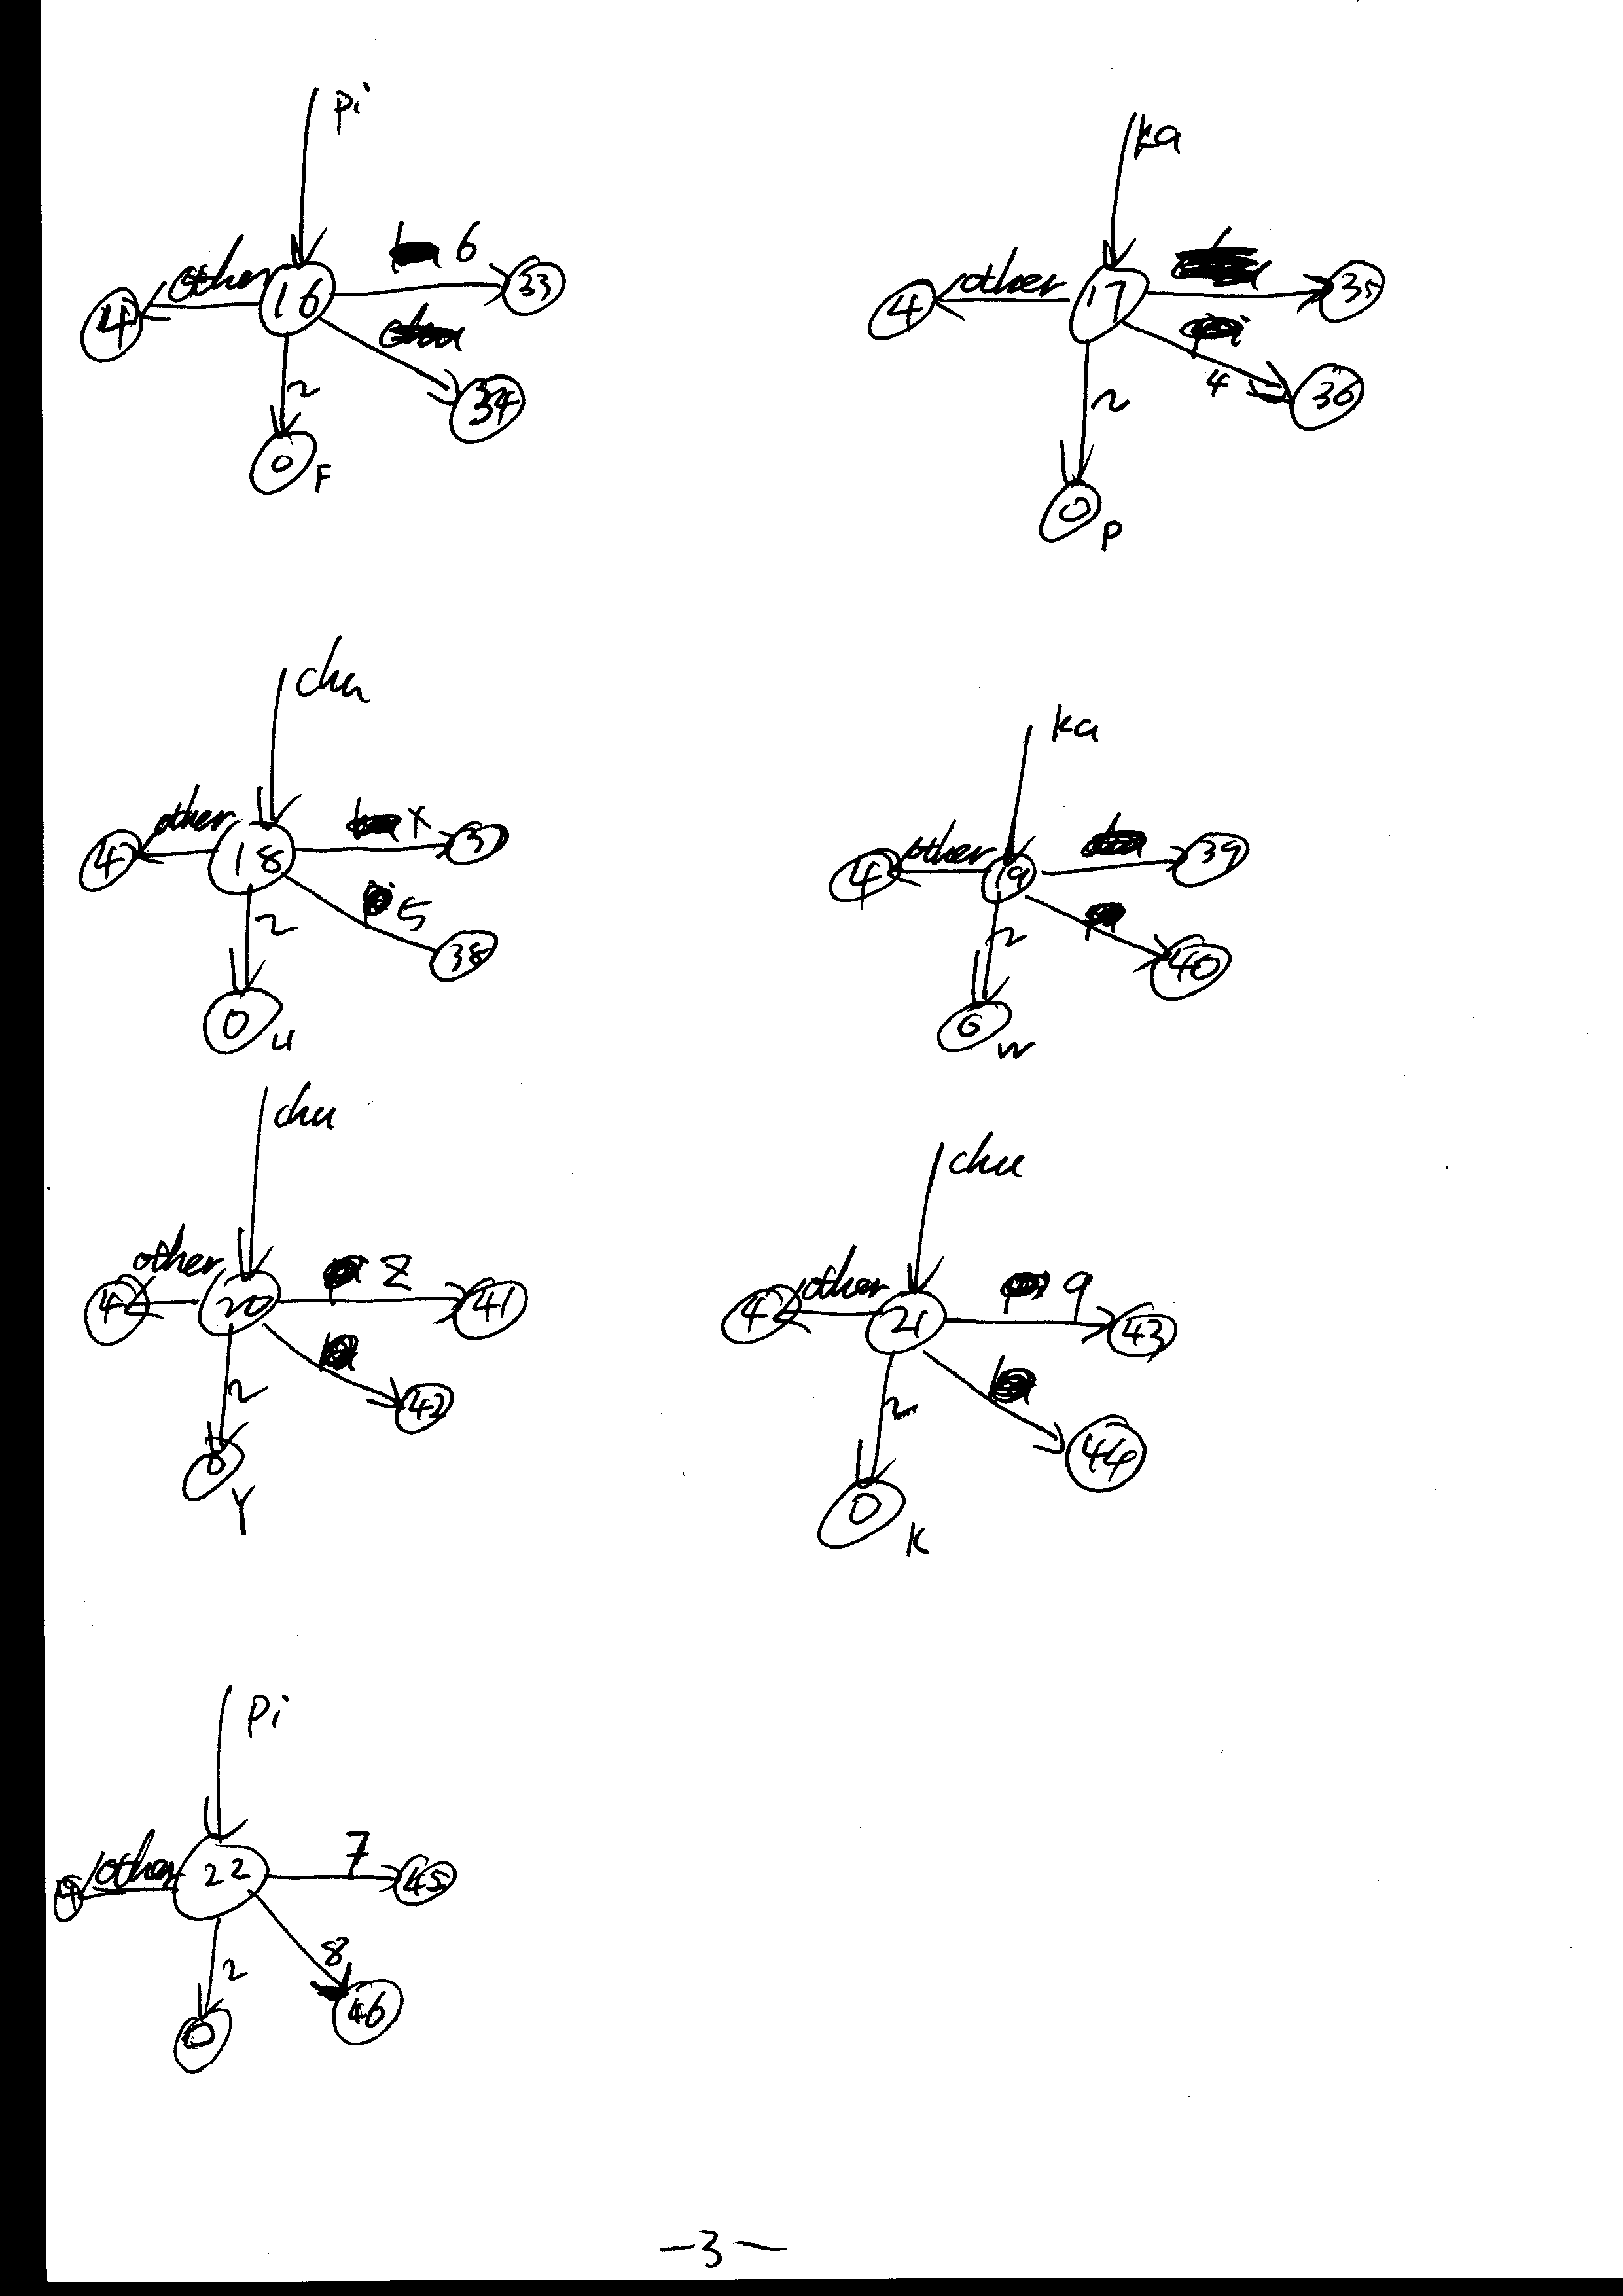 pi
other 16 6 33
4
34
2
0 F
ka
other 17 35
4
4 36
2
0 P
chu
other 18 x 37
4
5 38
2
0 u
ka
other 19 39
4
40
2
0 w
chu
other 20 Z 41
4
42
2
0 Y
chu
other 21 9 43
4
44
2
0 K
pi
other 22 7 45
4
8 46
2
0
-3-